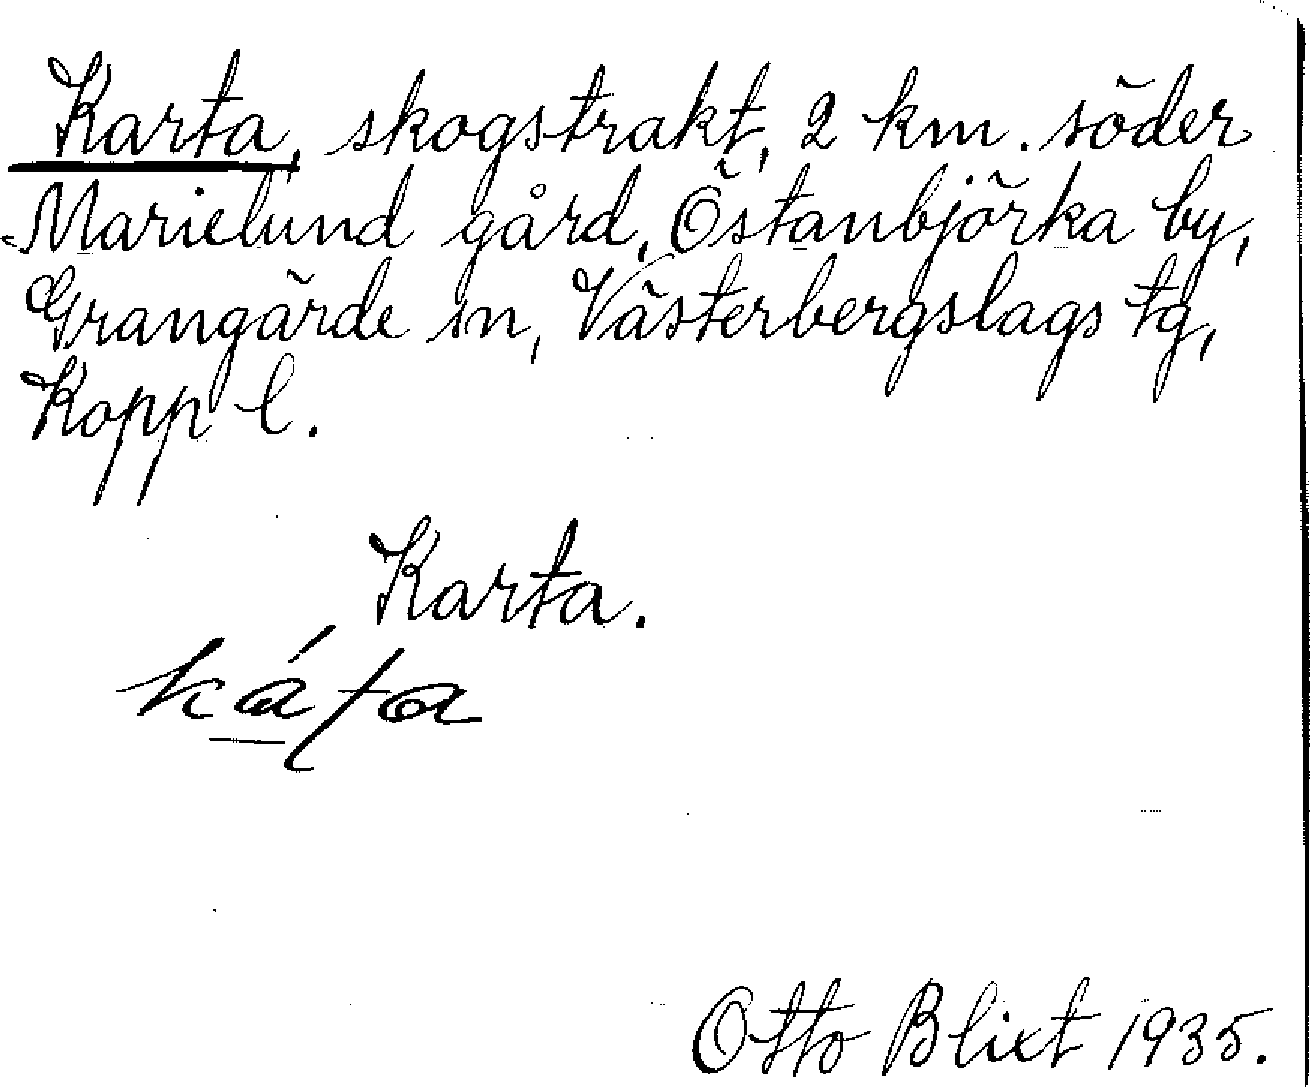 Karta, skogstrakt, 2 km. söder
Marielund gård, Östanbjörka by,
Grangärde sn, Västerbergslags tg,
Kopp l.
Karta.
Otto Blixt 1935.